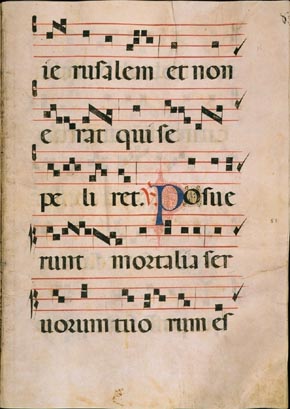 ie rusalem et non
e rat qui se
pe li ret. V. Posue
runt mortalia ser
uorum tuo rum es